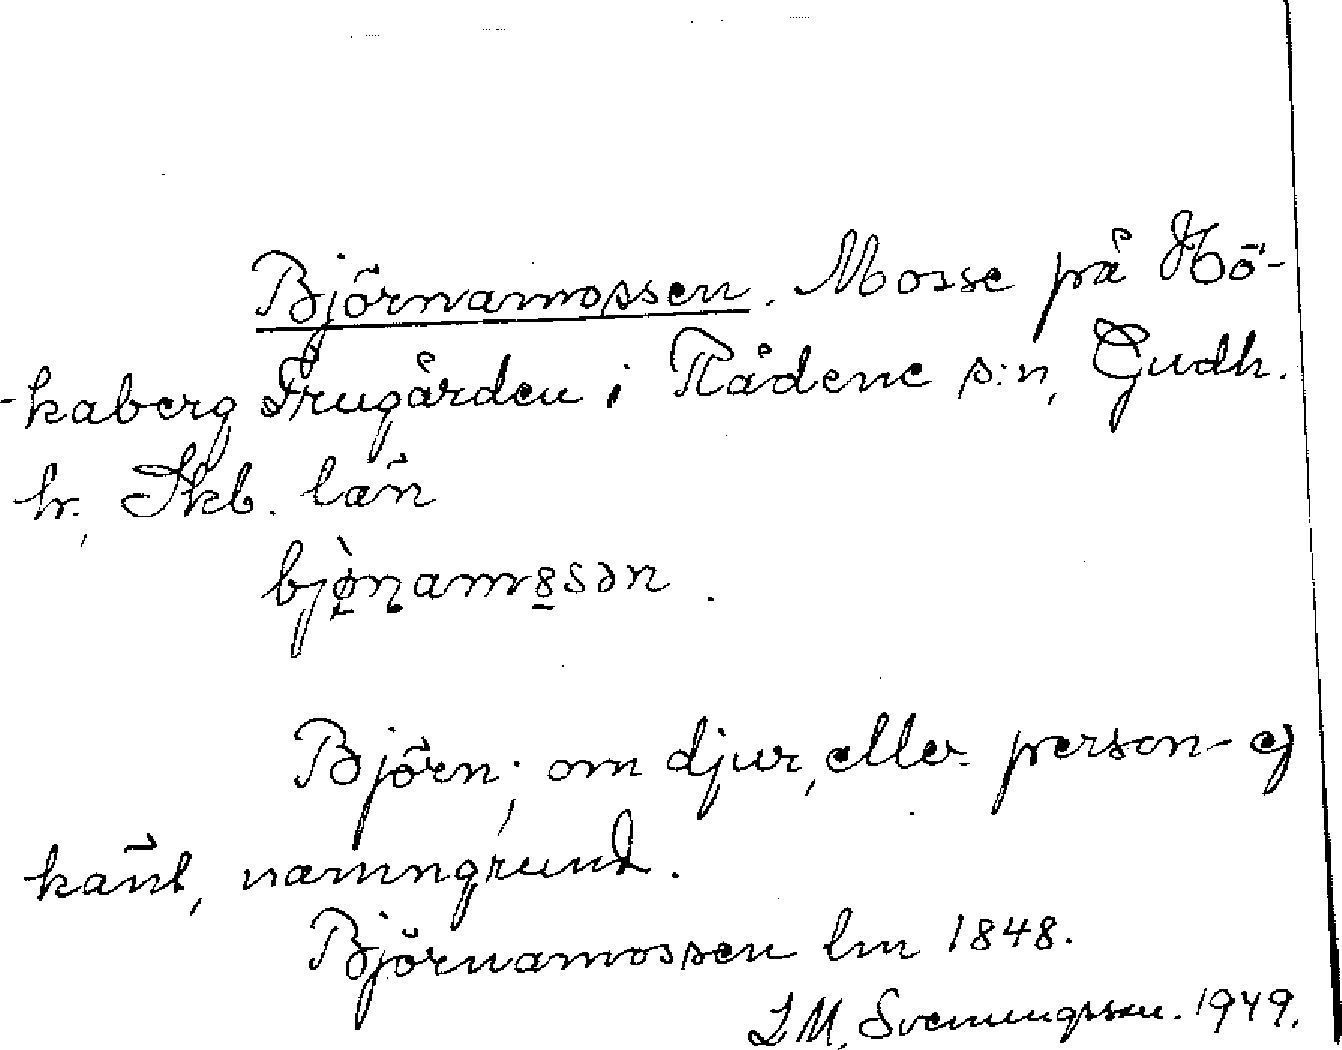 Björnamossen. Mosse på Hö-
kaberg Frugården i Rådene s:n, Gudh.
hr., Skb. län
bjø̀ṇamo̱sən.
Björn; om djur, eller person- ej
känt, namngrund.
Björnamossen lm 1848.
L M. Svenungsson. 1949.